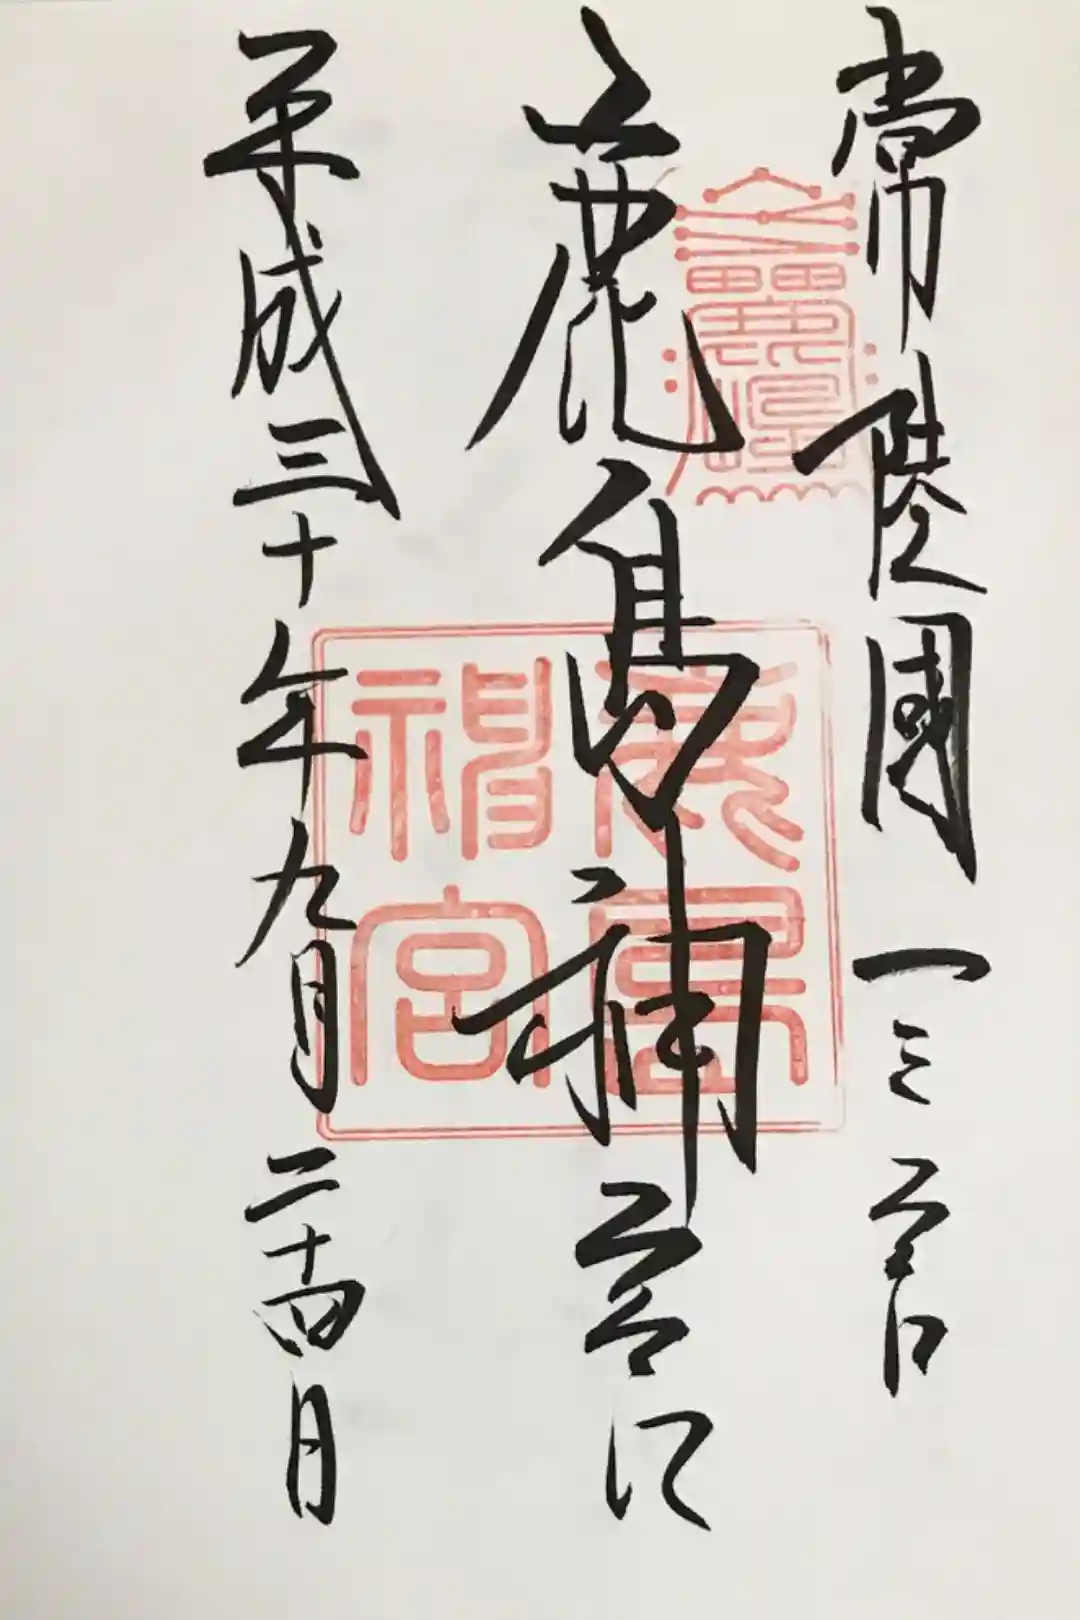 常陸國一之宮
鹿島神宮
平成三十年九月二十四日
鹿島
神宮